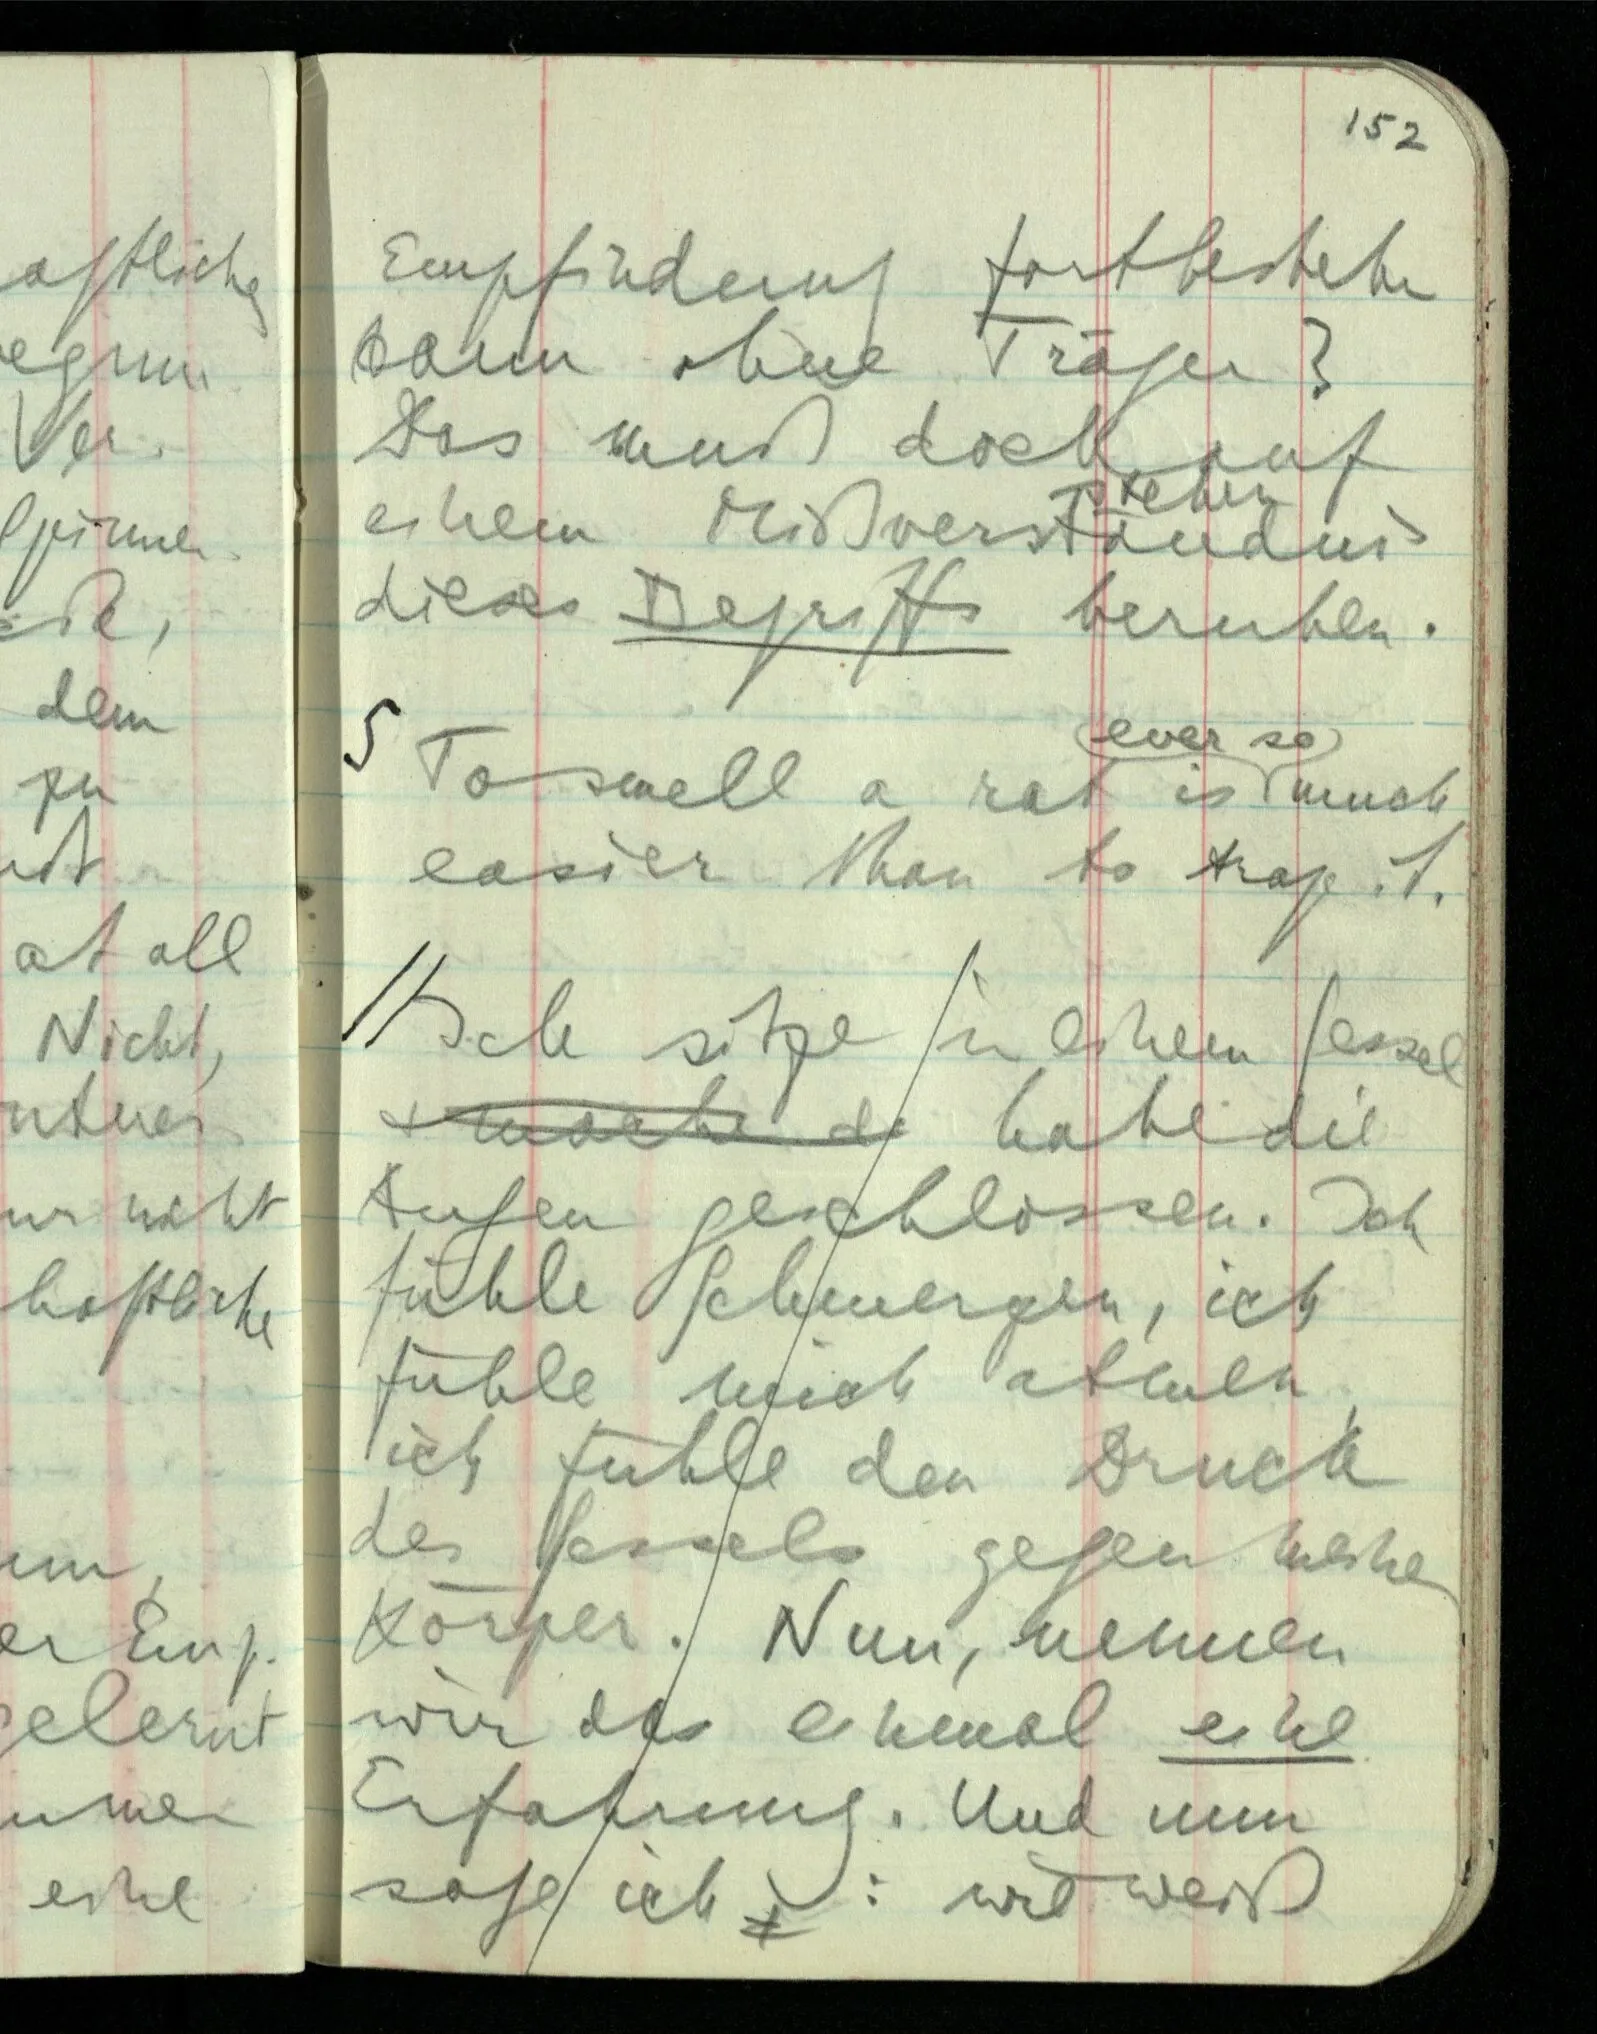 152
aftliche
Ver-
dem
zu
at all
Nicht,
nicht
haftliche
er Emp-
gelernt
eine
Empfindung fortbestehen
kann ohne Träger?
Das muß doch auf
stehen
einem Mißverständnis
dieses Begriffs beruhen.
S
ever so
To smell a rat is much
easier than to trap it.
// Ich sitze in einem Sessel
& mache d habe die
Augen geschlossen. Ich
fühle Schmerzen, ich
fühle mich atmen,
ich fühle den Druck
des Sessels gegen meinen
Körper. Nun, nennen
wir das einmal eine
Erfahrung. Und nun
sage ich : wie weiß